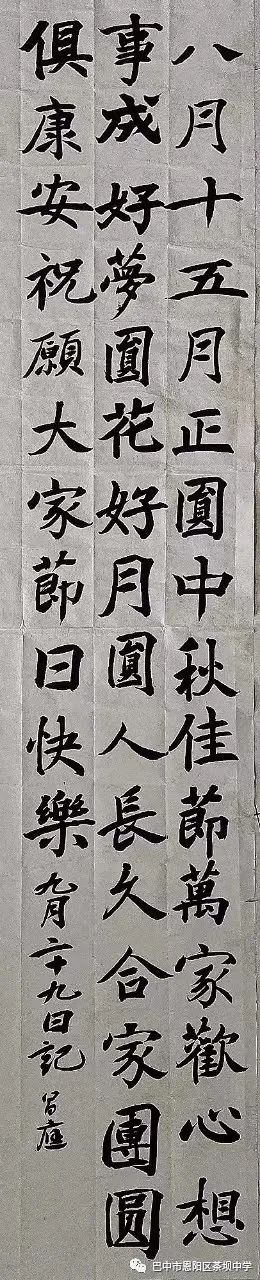 八月十五月正圓中秋佳節萬家歡心想
事成好夢圓花好月圓人長久合家團圆
俱康安祝願大家節日快樂九月二十九日記
巴中市恩阳区茶坝中学